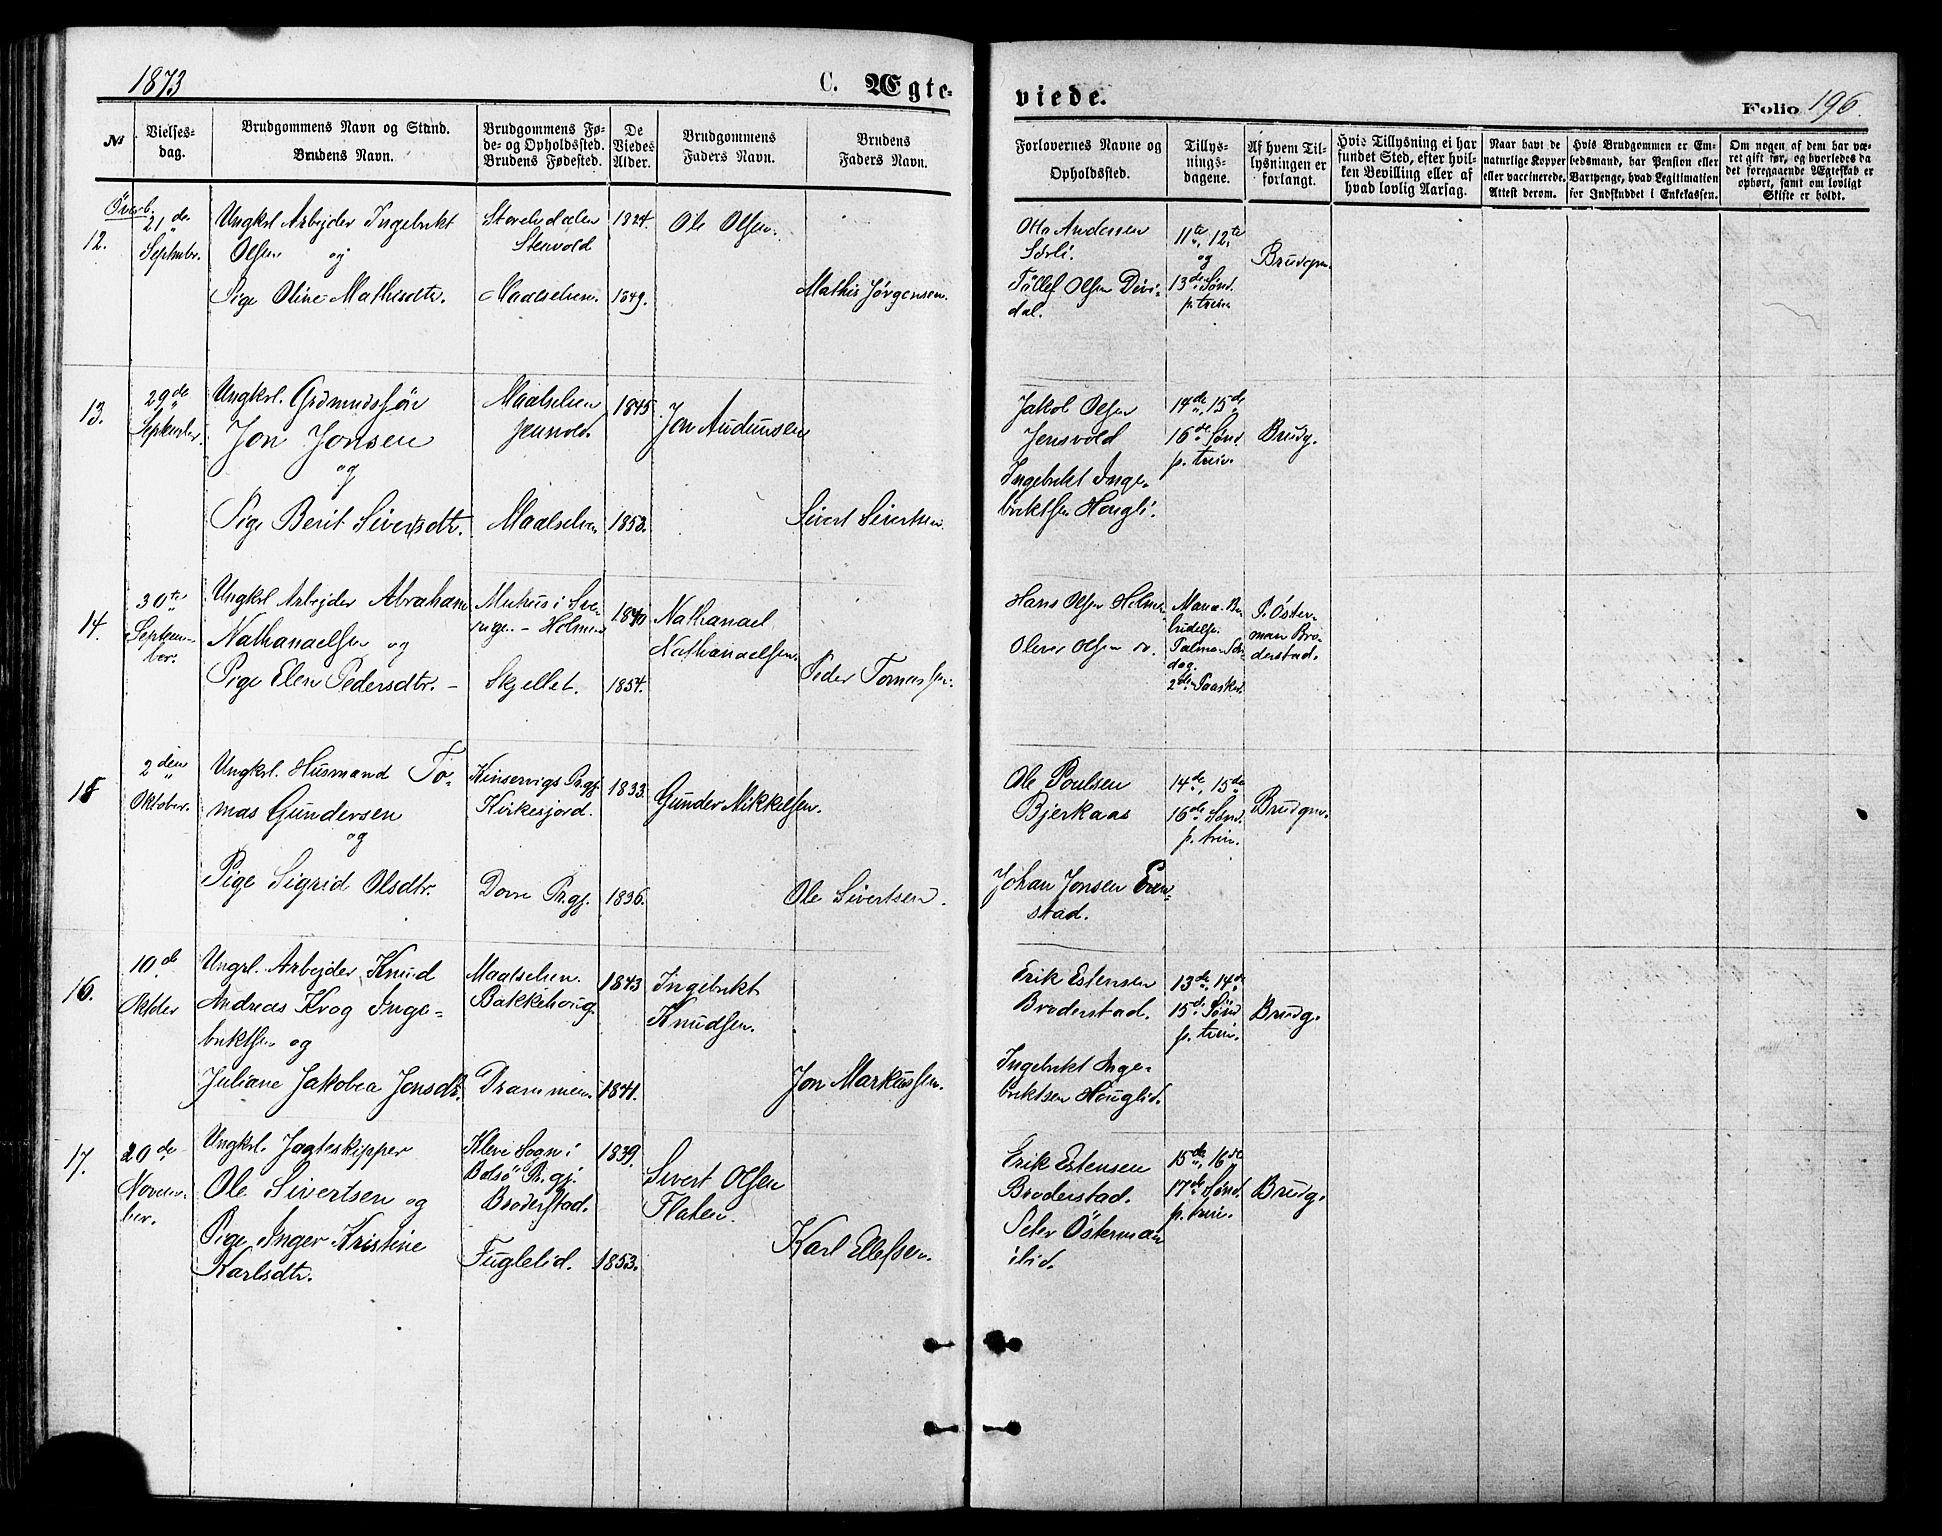 1873
C. Ægte-
viede.
Folio 196.
No
Vielses-
dag.
Brudgommens Navn og Stand.
Brudens Navn.
Brudgommens Fø-
de- og Opholdssted.
Brudens Fødested.
De
Viedes
Alder.
Brudgommens
Faders Navn.
Brudens
Faders Navn.
Forlovernes Navne og
Opholdssted.
Tillys-
nings-
dagene.
Af hvem Til-
lysningen er
forlangt.
Hvis Tillysning ei har
fundet Sted, efter hvil-
ken Bevilling eller af
hvad lovlig Aarsag.
Naar havt de
naturlige Kopper
eller vaccinerede.
Attest derom.
Hvis Brudgommen er Em-
bedsmand, har Pension eller
Vartpenge, hvad Legitimation
for Indskuddet i Enkekassen.
Om nogen af dem har væ-
ret gift før, og hvorledes da
det foregaaende Ægteskab er
ophørt, samt om lovligt
Skifte er holdt.
Överb.
12.
21de
Septembr.
Ungkrl Arbejder Ingebrikt
Olsen og
Pige Oline Mathisdtr.
Stenvold
Maalselven.
1824.
1849.
Ole Olsen.
Mathis Jørgensen.
Otto Andersen
Sørli.
Tollef Olsen Divi-
dal.
11te, 12te
og
13de Sønd.
p. trin
Brudgm.
13.
29de
September.
Ungkrl. Grdmndssøn
Jon Jonsen
og
Pige Berit Sivertsdtr.
Maalselven
Jensvold
Maalselven
1845.
1853.
Jon Audunsen
Sivert Sivertsen.
Jakob Olsen
Jensvold
Ingebrikt Inge-
briktsen Hougli.
14de, 15de
16de Sønd.
p. trin.
Brudg.
14.
30te
Septem-
ber.
Ungkrl Arbejder Abraham
Nathanaelsen og
Pige Elen Pedersdtr. -
i Sve-
rige. - Holmen
Skjellet.
1840
1854.
Nathanael
Nathanaelsen.
Peder Tomassen.
Hans Olsen Holmen
Oliver Olsen
Maria Be-
budelse.
Palme Søn-
dag.
2den Paaskd.
P. Öster-
man Bro-
derstad.
15
2den
Oktober.
Ungkrl. Husmand To-
mas Gundersen
og
Pige Sigrid Olsdtr.
Kinservigs Prgj.
Kirkesjord.
Dovre Prgj.
1833.
1836.
Gunder Mikkelsen.
Ole Sivertsen.
Ole Poulsen
Bjerkaas
Johan Jonsen Even-
stad.
14de, 15de
16de Sønd.
p. trin.
Brudgm.
16.
10de
Oktober
Ungrl. Arbejder Knud
Andreas Krog Inge-
briktsen og
Juliane Jakobea Jonsdtr.
Maalselven.
Bakkehoug.
Drammen
1843
1841.
Ingebrikt
Knudsen.
Jon Markussen.
Erik Estensen
Broderstad.
Ingebrikt Inge-
briktsen Houglid.
13de, 14de
15de Sønd
p. trin.
Brudg.
17.
20de
Novem-
ber.
Ungkrl. Jagteskipper
Ole Sivertsen og
Pige Inger Kristine
Karlsdtr.
Kleve Sogn i
Bolsö Prgj.
Broderstad.
Fuglelid.
1839.
1853.
Sivert Olsen
Flaten.
Karl Ellefsen.
Erik Estensen
Broderstad.
Peter Österman
15de, 16de
17de Sønd.
p. trin.
Brudg.